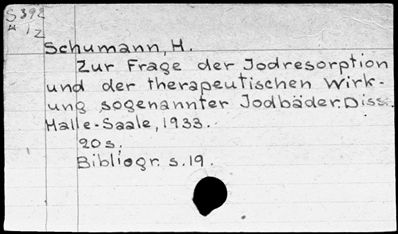 S392
H12
Schumann, H.
Zur Frage der Jodresorption
und der therapeutischen Wirk-
ung sogenannter Jodbäder. Diss.
Halle-Saale, 1933.
20s.
Bibliogr. s.19.